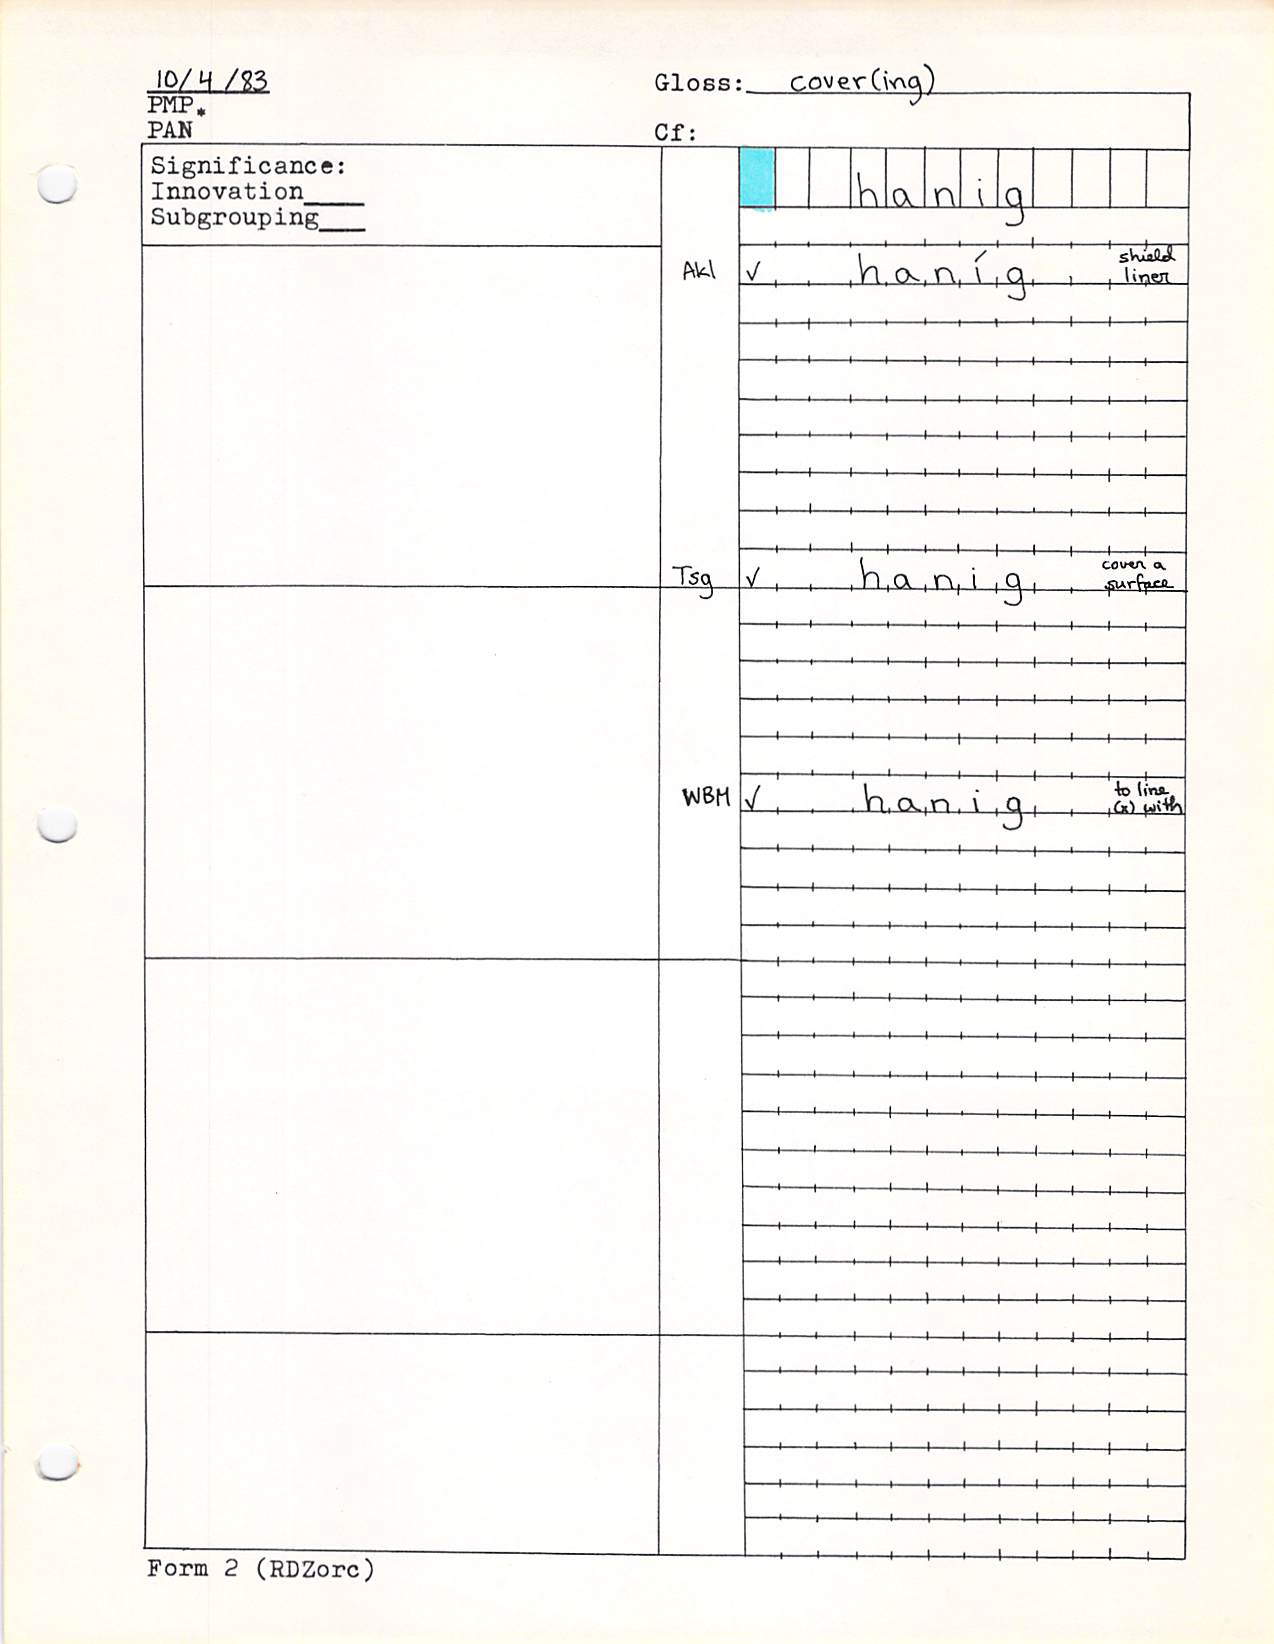 10/4/83
Gloss: cover(ing)
PMP*
PAN
Cf:
Significance:
Innovation____
Subgrouping____
hanig
Akl ✓ haníg shield liner
Tsg ✓ hanig cover a surface
WBM ✓ hanig to line (x) with
Form 2 (RDZorc)